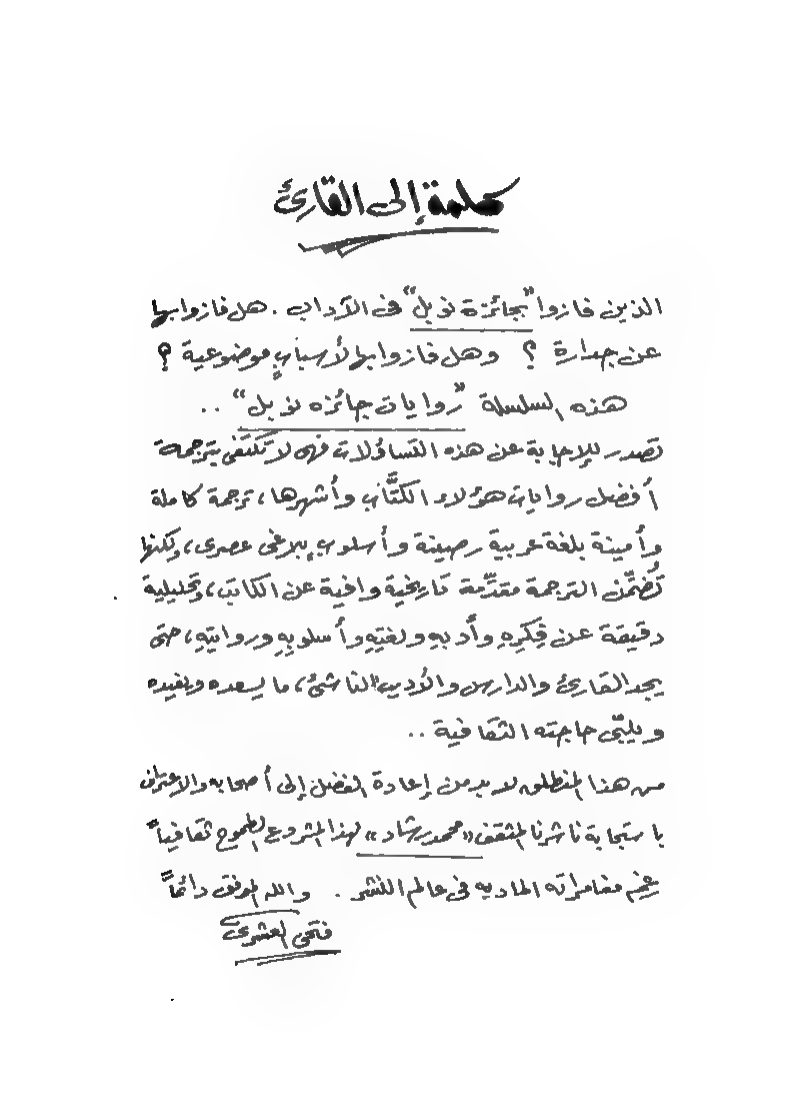 كلمة إلى القارئ
الذين فازوا "بجائزة نوبل" فى الآداب . هل فازوا بها
عن جدارة ؟ وهل فازوا بها لأسبابٍ موضوعية ؟
هذه السلسلة "روايات جائزه نوبل" ..
تصدر للإجابة عن هذه التساؤلات فهى لا تكتفى بترجمة
أفضل روايات هؤلاء الكتَّاب وأشهرها ، ترجمة كاملة
وأمينة بلغة عربية رصينة وأسلوب بلاغى عصرى ، ولكنها
تُضمِّن الترجمة مقدِّمة تاريخية وافية عن الكاتب ، وتحليلية
دقيقة عن فِكرِهِ وأدبهِ ولغتهِ وأسلوبِهِ وروايتهِ ، حتى
يجد القارئ والدارس والأديب الناشئ ، ما يسعده ويفيده
ويلبّى حاجته الثقافية ..
من هذا المنطلق لابد من إعادة الفضل إلى أصحابه والاعتراف
باستجابة ناشرنا المثقف «محمد رشاد» لهذا المشروع الطموح ثقافياً
رغم مغامراته الماديه فى عالم النشر . والله الموفق دائماً
فتحى العشرى